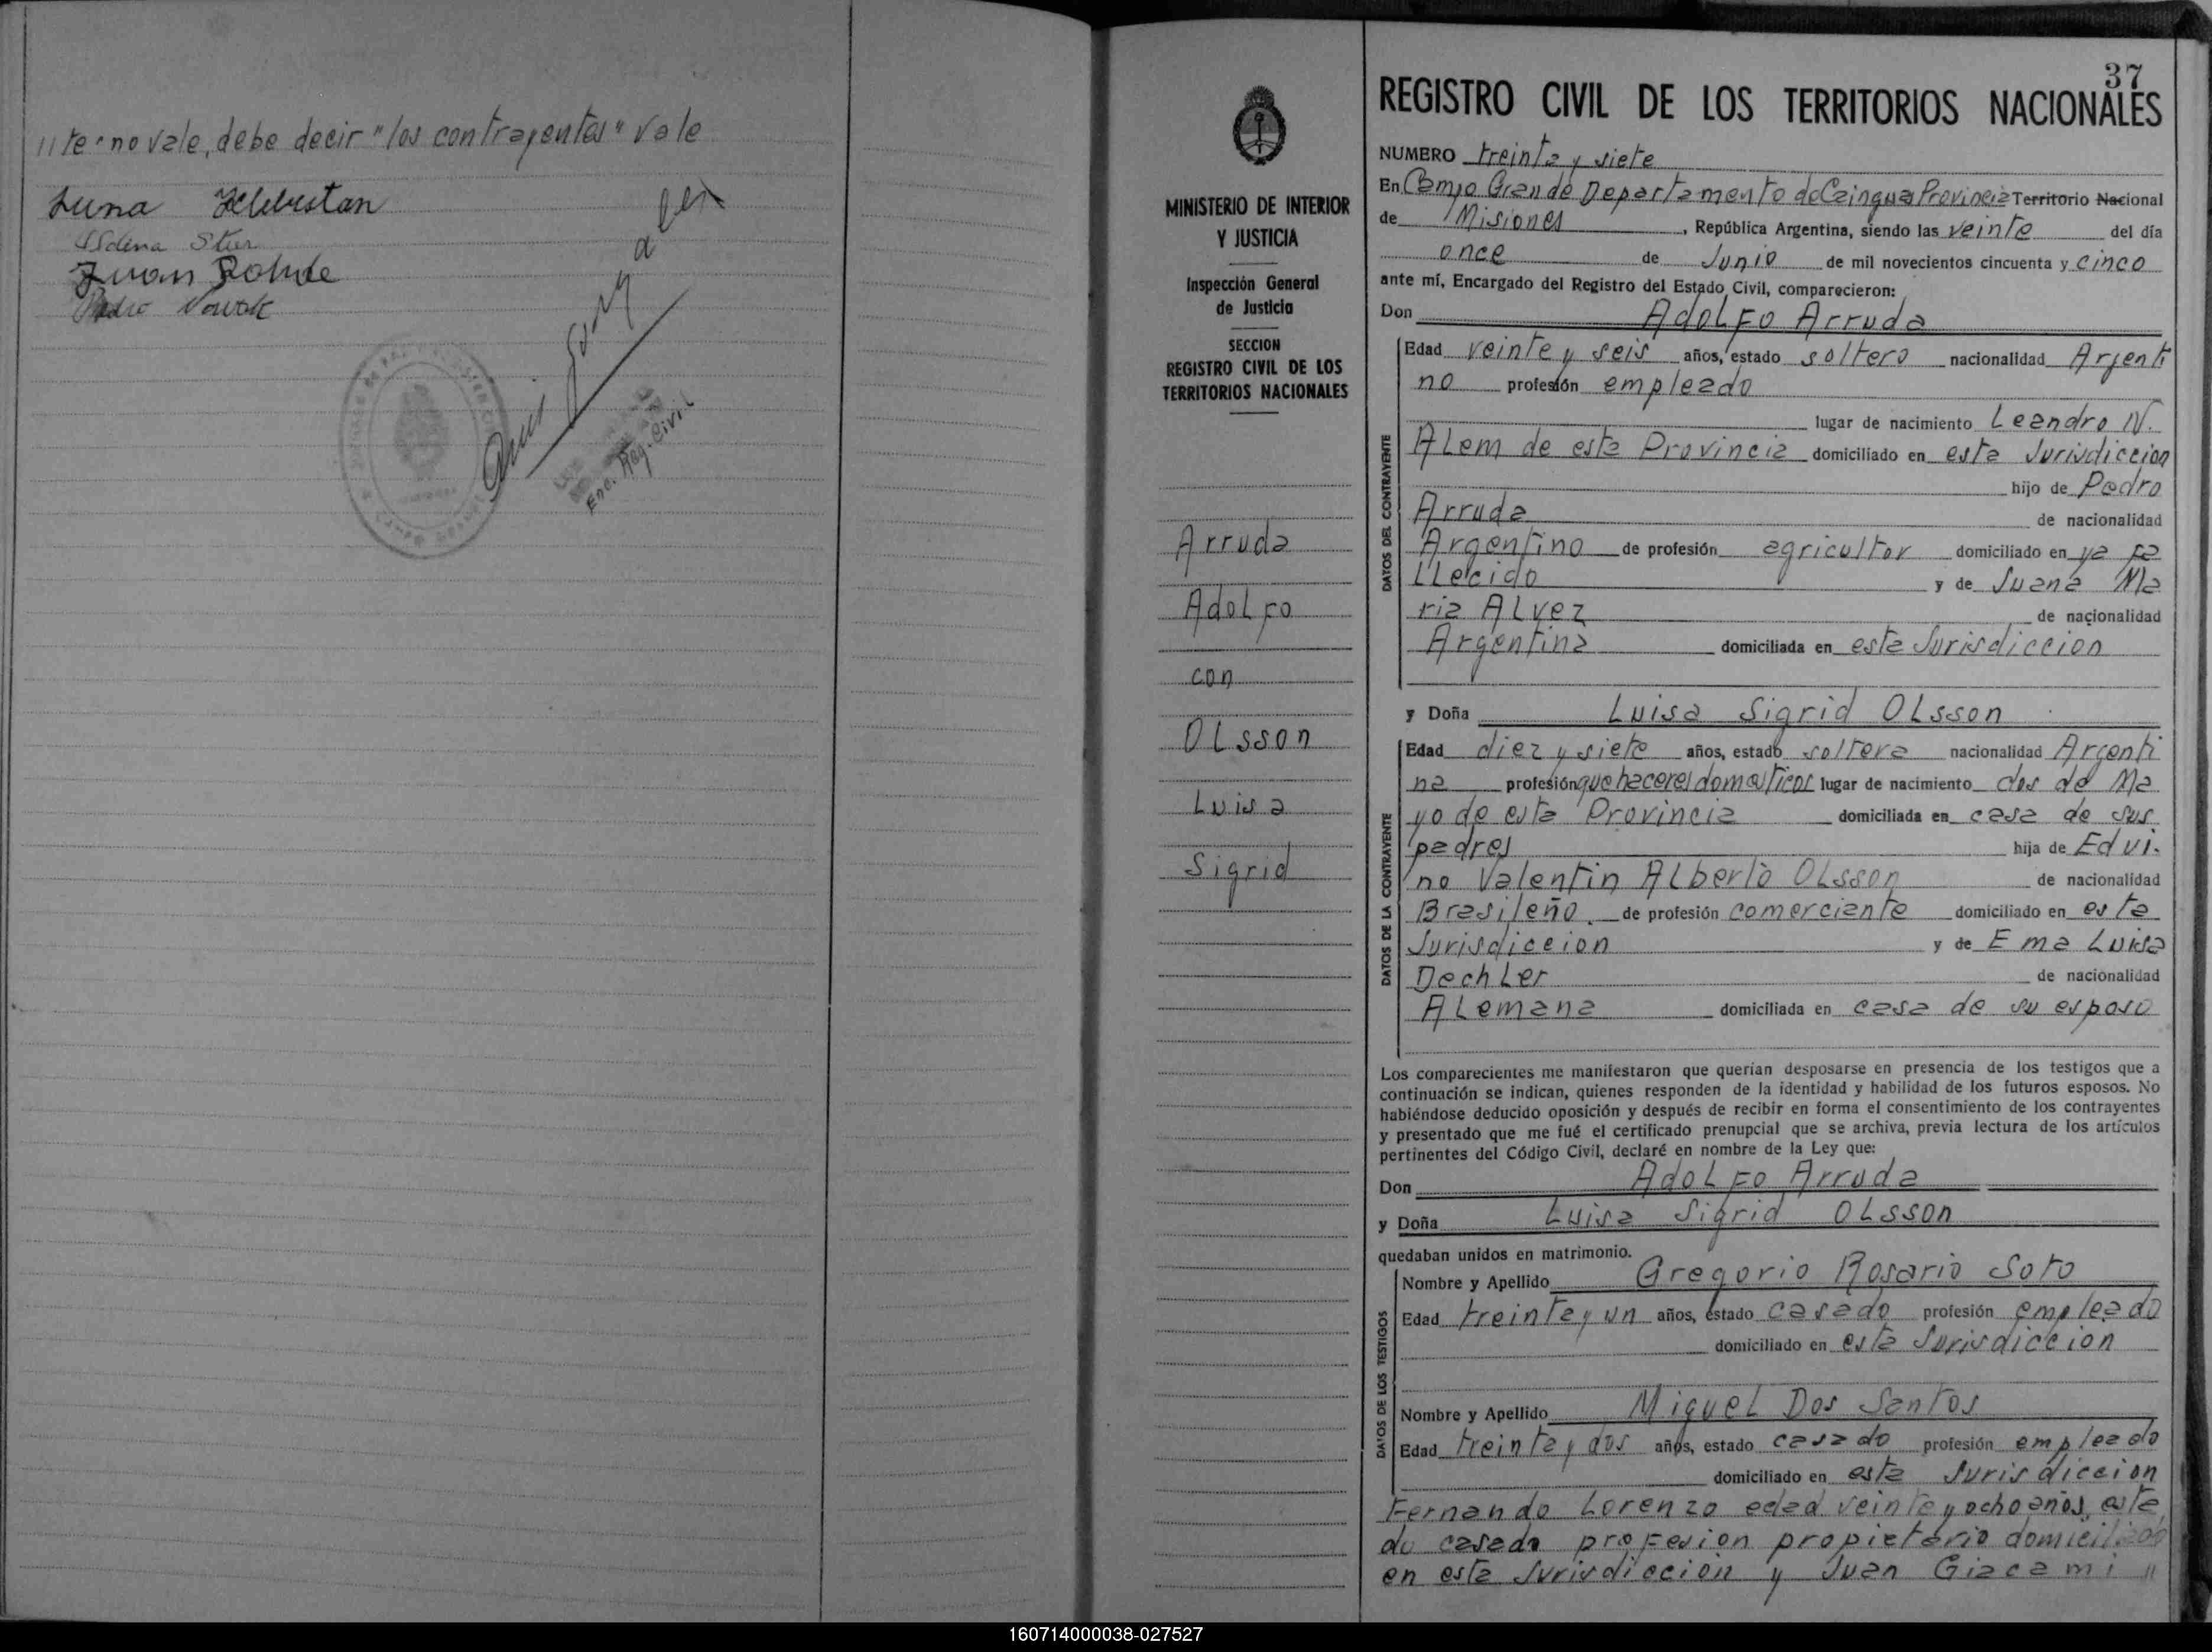 //te" no vale, debe decir "los contrayentes" vale
Juan Rohde
Pedro Nowak
Enc. Reg. Civil
MINISTERIO DE INTERIOR
Y JUSTICIA
Inspección General
de Justicia
SECCION
REGISTRO CIVIL DE LOS
TERRITORIOS NACIONALES
Arruda
Adolfo
con
Olsson
Luisa
Sigrid
37
REGISTRO CIVIL DE LOS TERRITORIOS NACIONALES
NUMERO treinta y siete
En Campo Grande Departamento de Caingua Provincia Territorio Nacional
de Misiones, República Argentina, siendo las veinte del día
once de Junio de mil novecientos cincuenta y cinco
ante mí, Encargado del Registro del Estado Civil, comparecieron:
Don Adolfo Arruda
DATOS DEL CONTRAYENTE
Edad veinte y seis años, estado soltero nacionalidad Argenti
no profesión empleado
lugar de nacimiento Leandro N.
Alem de esta Provincia domiciliado en esta Jurisdiccion
hijo de Pedro
Arruda de nacionalidad
Argentino de profesión agricultor domiciliado en ya fa
llecido y de Juana Ma
ria Alvez de nacionalidad
Argentina domiciliada en esta Jurisdiccion
y Doña Luisa Sigrid Olsson
DATOS DE LA CONTRAYENTE
Edad diez y siete años, estado soltera nacionalidad Argenti
na profesión quehaceres domesticos lugar de nacimiento dos de Ma
yo de esta Provincia domiciliada en casa de sus
padres hija de Edvi-
no Valentin Alberto Olsson de nacionalidad
Brasileño. de profesión comerciante domiciliado en esta
Jurisdiccion y de Ema Luisa
Dechler de nacionalidad
Alemana domiciliada en casa de su esposo
Los comparecientes me manifestaron que querían desposarse en presencia de los testigos que a
continuación se indican, quienes responden de la identidad y habilidad de los futuros esposos. No
habiéndose deducido oposición y después de recibir en forma el consentimiento de los contrayentes
y presentado que me fué el certificado prenupcial que se archiva, previa lectura de los artículos
pertinentes del Código Civil, declaré en nombre de la Ley que:
Don Adolfo Arruda
y Doña Luisa Sigrid Olsson
quedaban unidos en matrimonio.
DATOS DE LOS TESTIGOS
Nombre y Apellido Gregorio Rosario Soto
Edad treinta y un años, estado casado profesión empleado
domiciliado en esta Jurisdiccion
Nombre y Apellido Miguel Dos Santos
Edad treinta y dos años, estado casado profesión empleado
domiciliado en esta Jurisdiccion
Fernando Lorenzo edad veinte y ocho años, esta
do casado profesion propietario domiciliado
en esta Jurisdiccion y Juan Giacami //
160714000038-027527